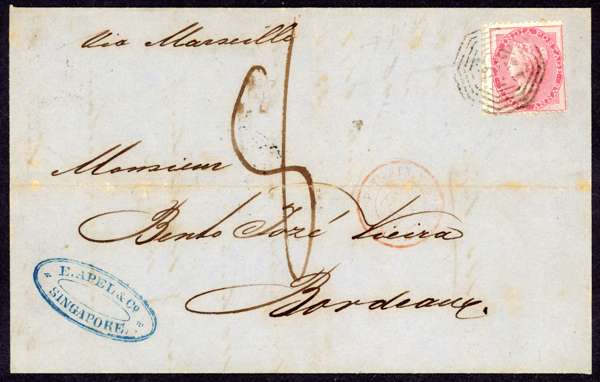 via Marseille
Monsieur
Bento José Vieira
Bordeaux.
E. APEL & Co
SINGAPORE.